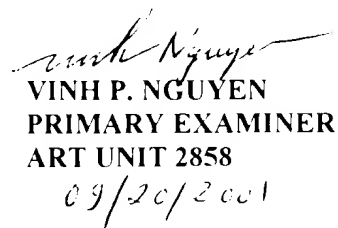 Vinh Nguyen
VINH P. NGUYEN
PRIMARY EXAMINER
ART UNIT 2858
09/20/2001